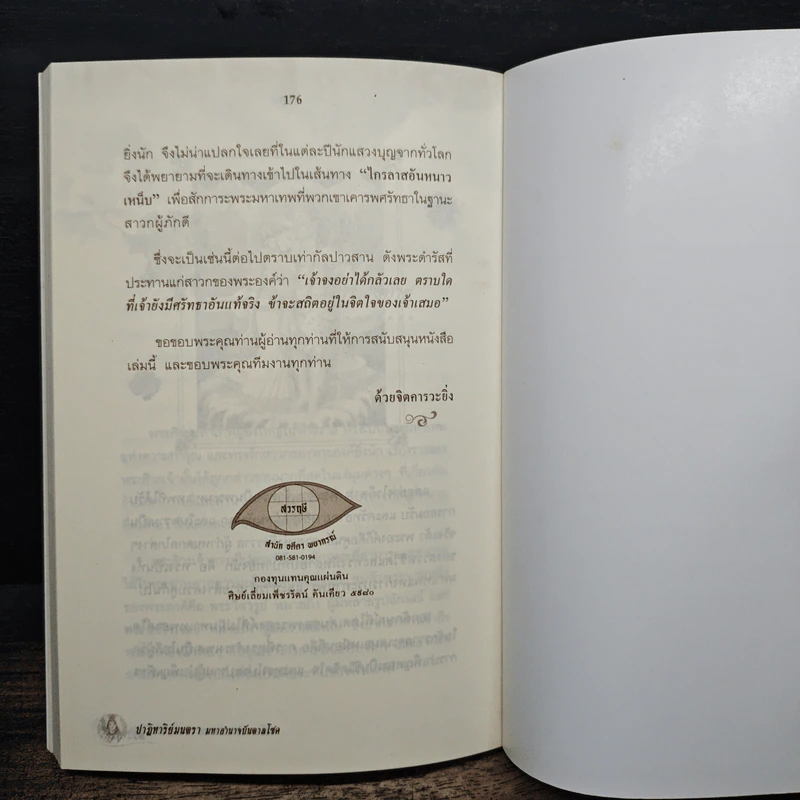 176
ยิ่งนัก จึงไม่น่าแปลกใจเลยที่ในแต่ละปีนักแสวงบุญจากทั่วโลก
จึงได้พยายามที่จะเดินทางเข้าไปในเส้นทาง “ไกรลาสอันหนาว
เหน็บ” เพื่อสักการะพระมหาเทพที่พวกเขาเคารพศรัทธาในฐานะ
สาวกผู้ภักดี
ซึ่งจะเป็นเช่นนี้ต่อไปตราบเท่ากัลปาวสาน ดังพระดำรัสที่
ประทานแก่สาวกของพระองค์ว่า “เจ้าจงอย่าได้กลัวเลย ตราบใด
ที่เจ้ายังมีศรัทธาอันแท้จริง ข้าจะสถิตอยู่ในจิตใจของเจ้าเสมอ”
ขอขอบพระคุณท่านผู้อ่านทุกท่านที่ให้การสนับสนุนหนังสือ
เล่มนี้ และขอบพระคุณทีมงานทุกท่าน
ด้วยจิตคารวะยิ่ง
สวรฤษี
สำนัก ชคีตา พยากรณ์
081-581-0194
กองทุนแทนคุณแผ่นดิน
ศิษย์เลี่ยมเพ็ชรรัตน์ คันเคียว ๕๙๘๐
ปาฏิหาริย์มนตรา มหาอำนาจบันดาลโชค